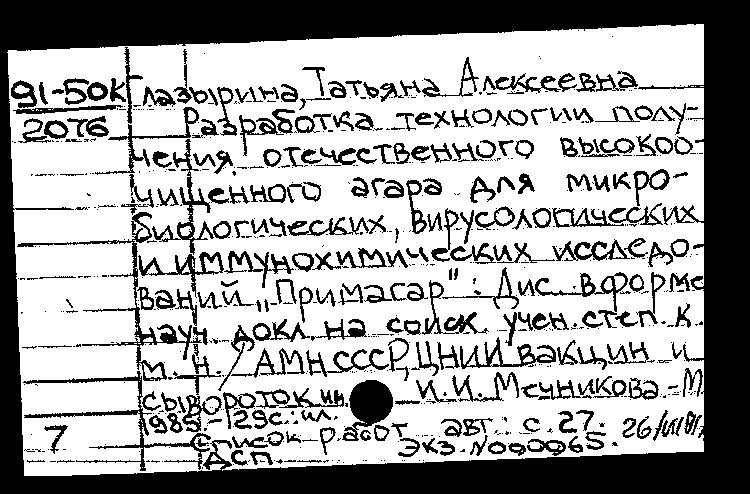 91-50К Глазырина, Татьяна Алексеевна
2076 Разработка технологии полу-
чения отечественного высокоо-
чищенного агара для микро-
биологических, вирусологических
и иммунохимических исследо-
ваний „Примагар": Дис. в форме
науч докл. на соиск. учен. степ. к.
м. н. АМН СССР, ЦНИИ вакцин и
сывороток им. И.И. Мечникова.-М
1985 - 29с. ил.
7 Список работ авт: с. 27.
ДСП. ЭКЗ. №000065.